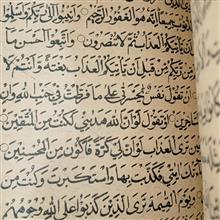 جَمِيعًا إِنَّهُ هُوَ الْغَفُورُ الرَّحِيمُ وَأَنِيبُوا إِلَى رَبِّكُمْ وَأَسْلِمُوا
يَأْتِيَكُمُ الْعَذَابُ ثُمَّ لَا تُنْصَرُونَ وَاتَّبِعُوا أَحْسَنَ مَا
مِنْ رَبِّكُمْ مِنْ قَبْلِ أَنْ يَأْتِيَكُمُ الْعَذَابُ بَغْتَةً وَأَنْتُمْ
أَنْ تَقُولَ نَفْسٌ يَا حَسْرَتَى عَلَى مَا فَرَّطْتُ فِي جَنْبِ اللَّهِ وَإِنْ
أَوْ تَقُولَ لَوْ أَنَّ اللَّهَ هَدَانِي لَكُنْتُ مِنَ الْمُتَّقِينَ
تَرَى الْعَذَابَ لَوْ أَنَّ لِي كَرَّةً فَأَكُونَ مِنَ الْمُحْسِنِينَ
آيَاتِي فَكَذَّبْتَ بِهَا وَاسْتَكْبَرْتَ وَكُنْتَ مِنَ
وَيَوْمَ الْقِيَامَةِ تَرَى الَّذِينَ كَذَبُوا عَلَى اللَّهِ وُجُوهُهُمْ